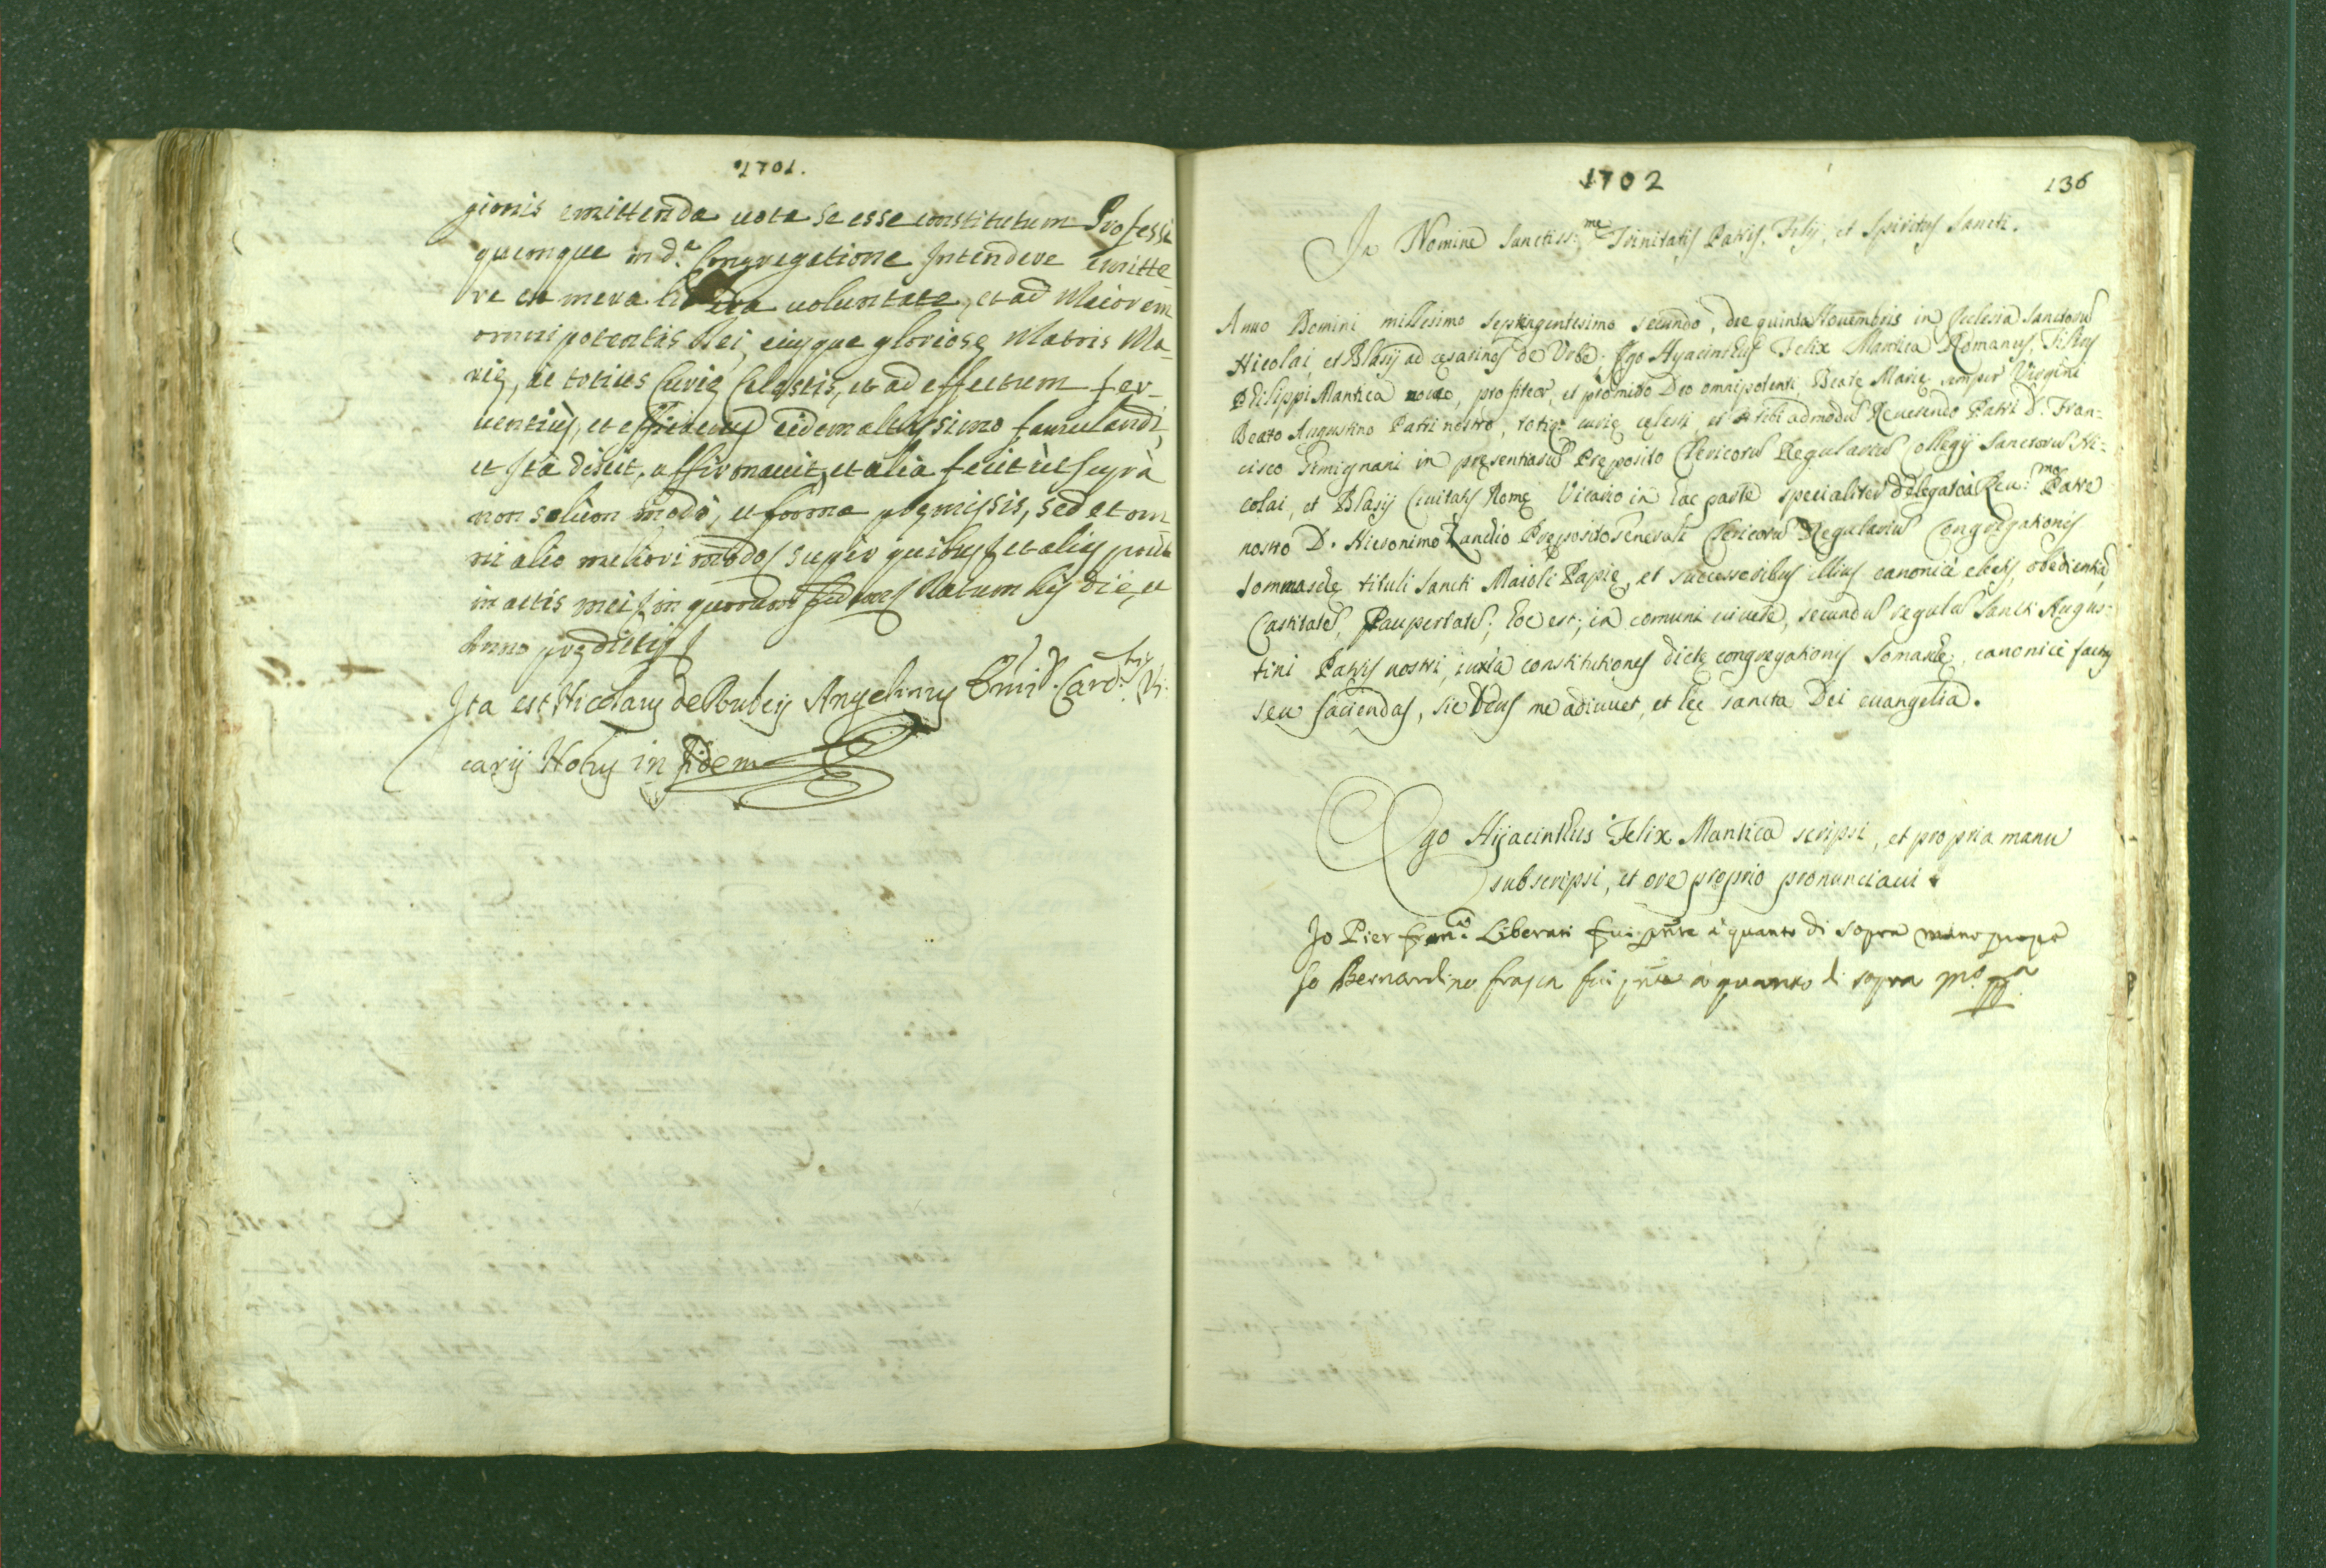 1701.
gionis emittenda uota se esse constitutum Professi
quemque in d.ᵃ Congregatione Intendere emitte
re ex mera libera uoluntate, et ad Maiorem
omnipotentis Dei, eiusque gloriosę Matris Ma-
rię, ac totius Curię Celestis, et ad effectum fer-
uentius, et efficacius eidem altissimo famulandi,
et Ita dixit, affirmauit, et alia fecit ut supra
non solum modo, et forma pręmissis, sed et om
ni alio meliori modo super quibus et alijs prout
in actis meis in quorum fidem Datum his die, et
Anno prędictis
Ita est Nicolaus de Rubeis Angelinus Emi D. Card. Vi-
carij Notus in fidem
1702
136
In Nomine Sanctiss:ᵐᵉ Trinitatis Patris, Filij, et Spiritus Sancti.
Anno Domini millesimo septingentesimo secundo, die quinta Nouembris in Ecclesia Sanctorū
Nicolai, et Blasij ad cęsarinos de Vrbe; Ego Hyacinthus Felix Mantica Romanus, Filius
Philippi Mantica uoueo, profiteor, et promitto Deo omnipotenti Beatę Marię semper Virgini
Beato Augustino Patri nostro, totiq: curię cęlesti, et tibi admodū Reuerendo Patri D. Fran-
cisco Gimignani in pręsentiarū Pręposito Clericorū Regulariū Collegij Sanctorū Ni-
colai, et Blasij Ciuitatis Romę Vicario in hac parte specialiter delegato à Reu:ᵐᵒ Patre
nostro D. Hieronimo Zandio Pręposito Generali Clericorū Regulariū Congregationis
Sommaschę tituli Sancti Maioli Papię, et successoribus illius canonicè electis, obedientiā,
Castitatē, Paupertatē; hoc est; in comuni uiuere, secundū regulā Sancti Augus-
tini Patris nostri, iuxta constitutiones dictę congregationis Somaschę, canonicè factas
seu faciendas, sic Deus me adiuuet, et hęc sancta Dei euangelia.
Ego Hyacinthus Felix Mantica scripsi, et propria manu
subscripsi, et ore proprio pronunciaui.
Io Pier Franᶜᵒ Liberati fui pñte a quanto di sopra mano propa
Io Bernardino frasca fui pñte a quanto di sopra mº ppª